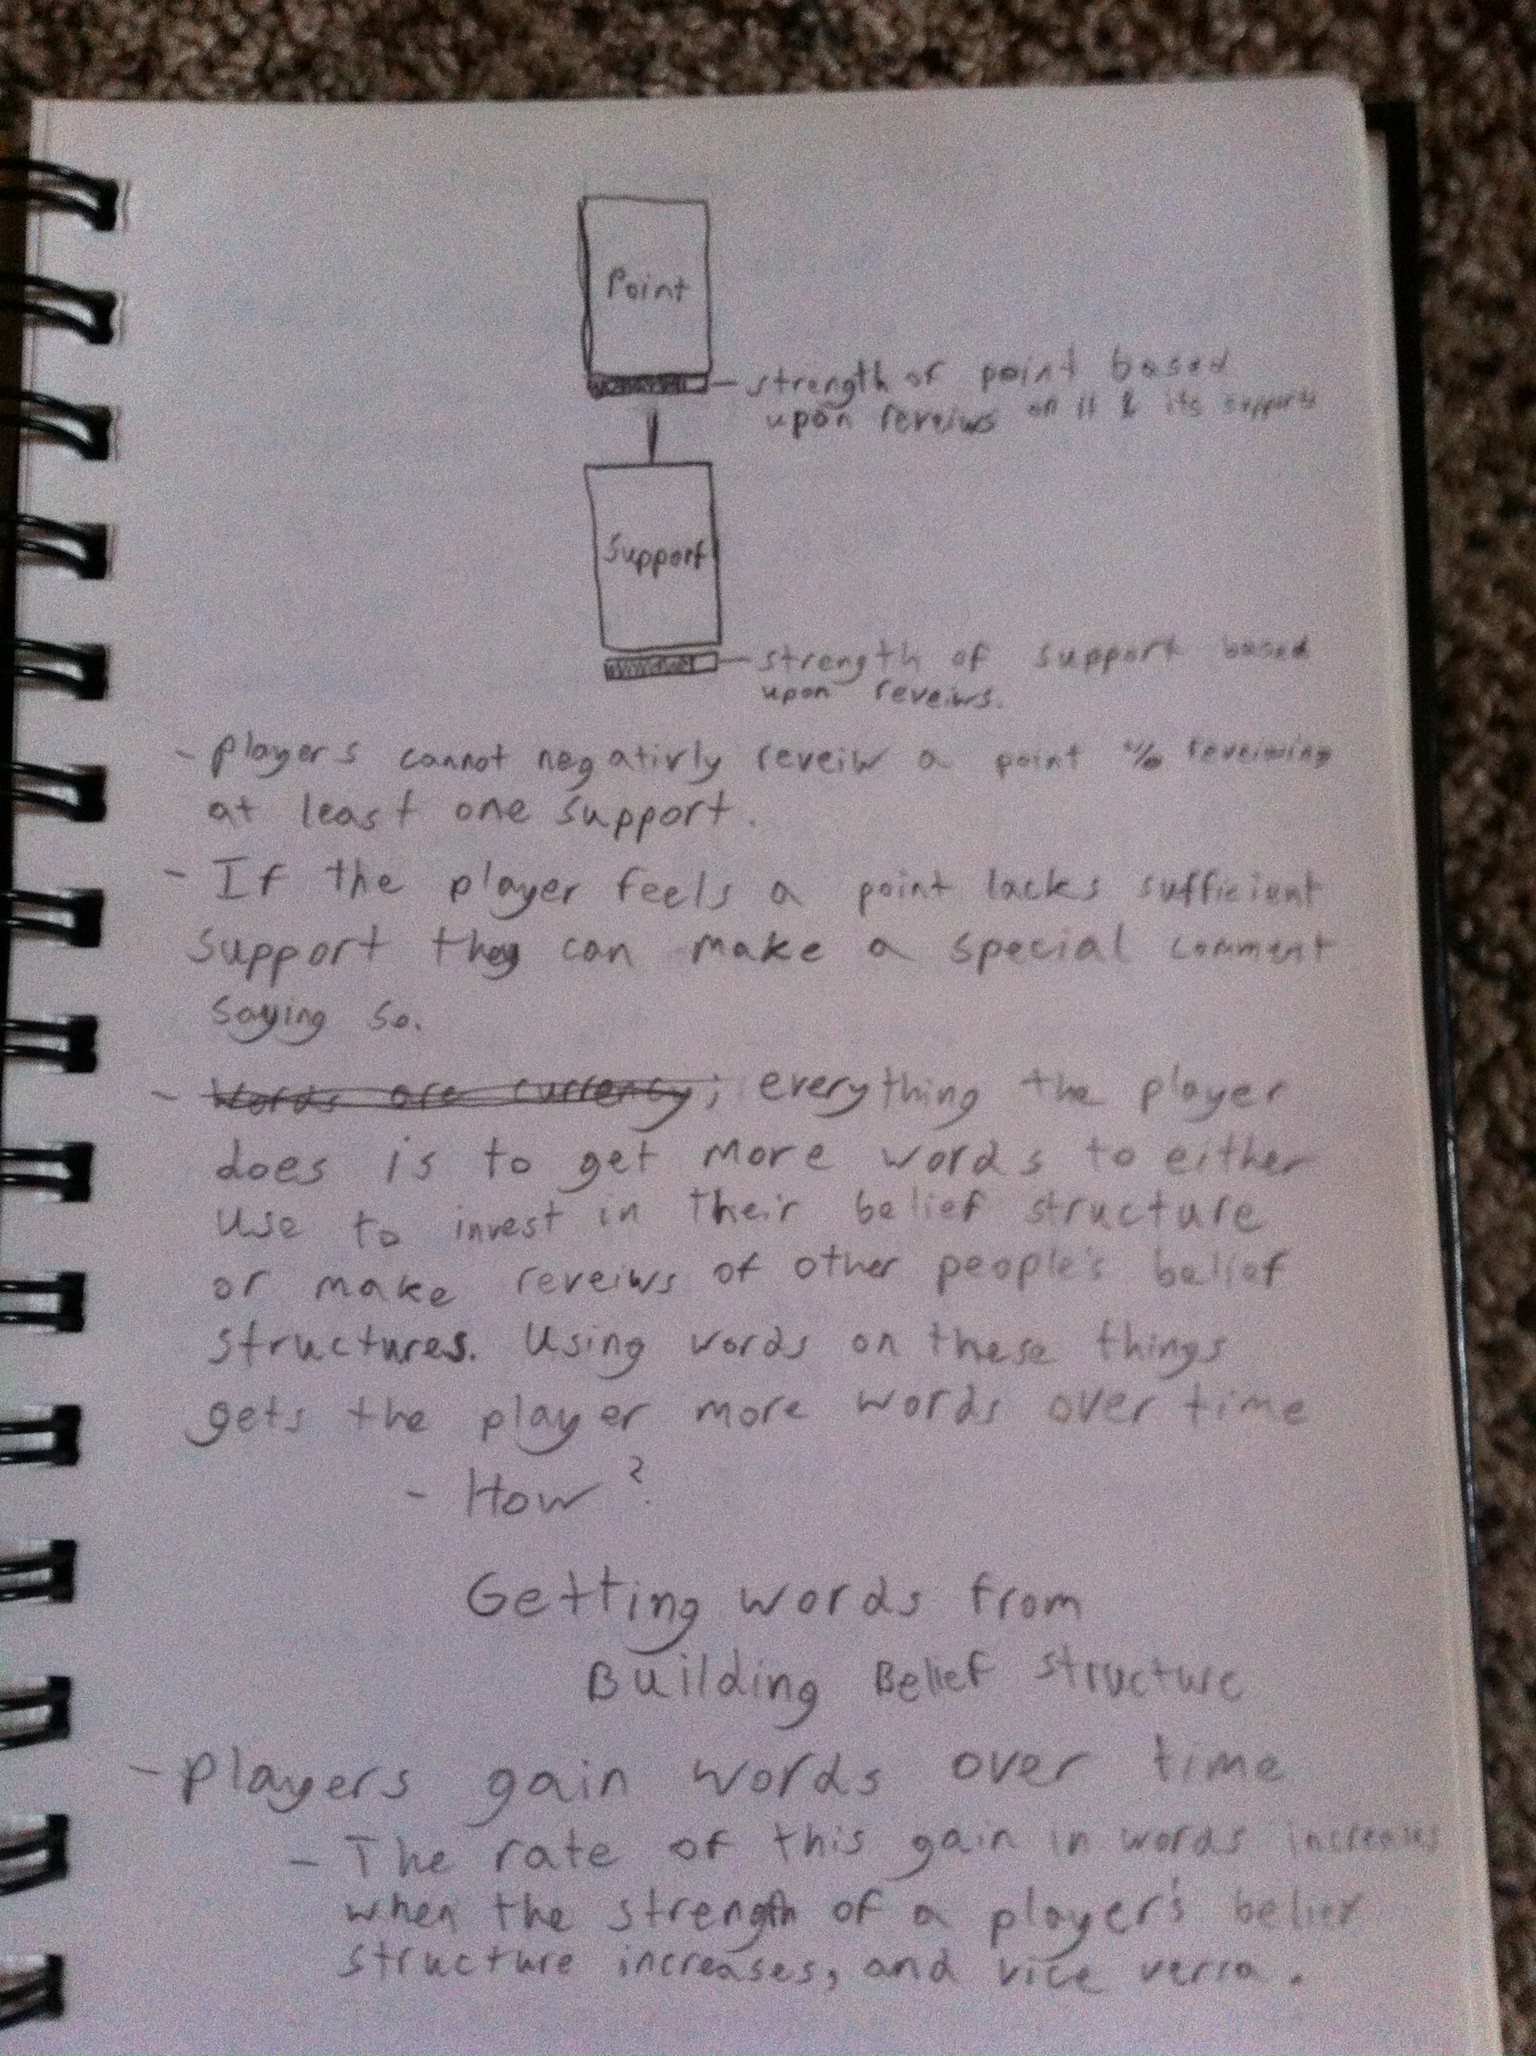 Point
strength of point based
upon reveiws on it & its supports
Support
strength of support based
upon reveiws.
- players cannot negativly reveiw a point w/o reveiwing
at least one support.
- If the player feels a point lacks sufficient
support they can make a special comment
saying so.
- Words are currency; everything the player
does is to get more words to either
use to invest in their belief structure
or make reveiws of other people's belief
structures. Using words on these things
gets the player more words over time
- How?
Getting words from
Building Belief structure
- Players gain words over time
- The rate of this gain in words increases
when the strength of a player's belief
structure increases, and vice versa.